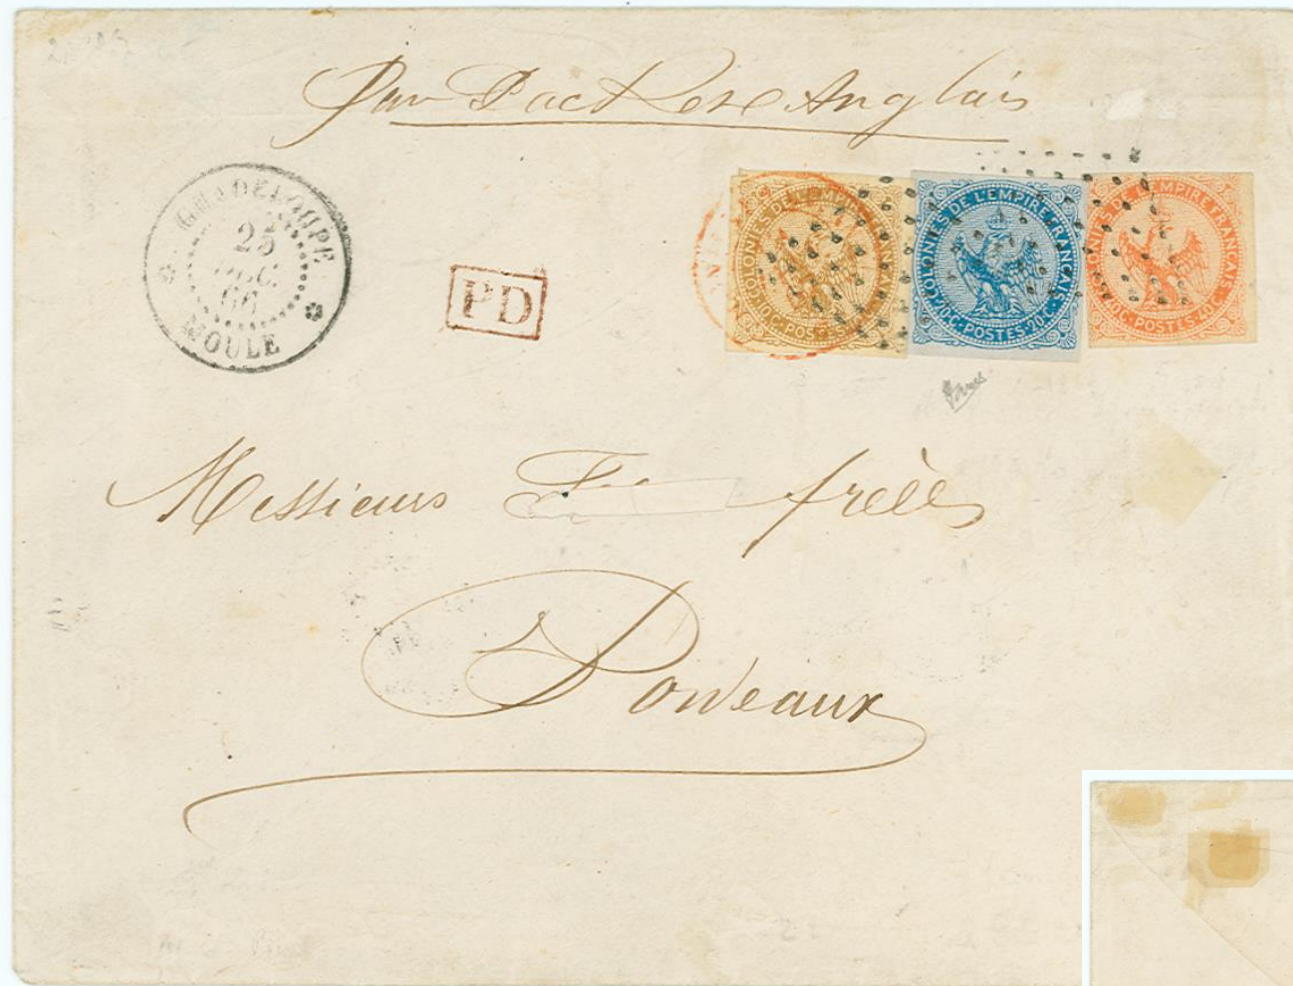 Par Packet Anglais
GUADELOUPE
25
DEC.
66
MOULE
PD
COLONIES DE L'EMPIRE FRANÇAIS
10C. POSTES 10C.
COLONIES DE L'EMPIRE FRANÇAIS
20C. POSTES. 20C.
COLONIES DE L'EMPIRE FRANÇAIS
40C. POSTES. 40C.
Messieurs F frères
Bordeaux